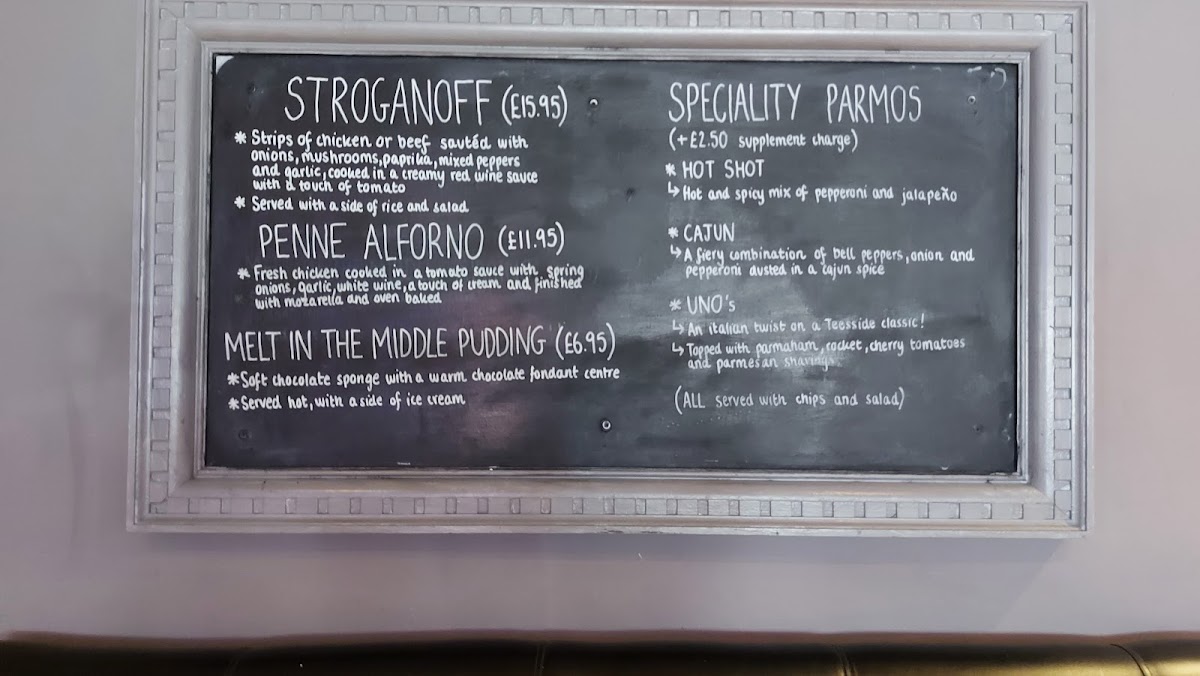 STROGANOFF (£15.95)
* Strips of chicken or beef sautéd with
onions, mushrooms, paprika, mixed peppers
and garlic, cooked in a creamy red wine sauce
with a touch of tomato
* Served with a side of rice and salad
PENNE ALFORNO (£11.95)
* Fresh chicken cooked in a tomato sauce with spring
onions, garlic, white wine, a touch of cream and finished
with mozarella and oven baked
MELT IN THE MIDDLE PUDDING (£6.95)
* Soft chocolate sponge with a warm chocolate fondant centre
* Served hot, with a side of ice cream
SPECIALITY PARMOS
(+£2.50 supplement charge)
* HOT SHOT
↳ Hot and spicy mix of pepperoni and jalapeño
* CAJUN
↳ A fiery combination of bell peppers, onion and
pepperoni dusted in a cajun spice
* UNO's
↳ An italian twist on a Teesside classic!
↳ Topped with parmaham, rocket, cherry tomatoes
and parmesan shavings
(ALL served with chips and salad)